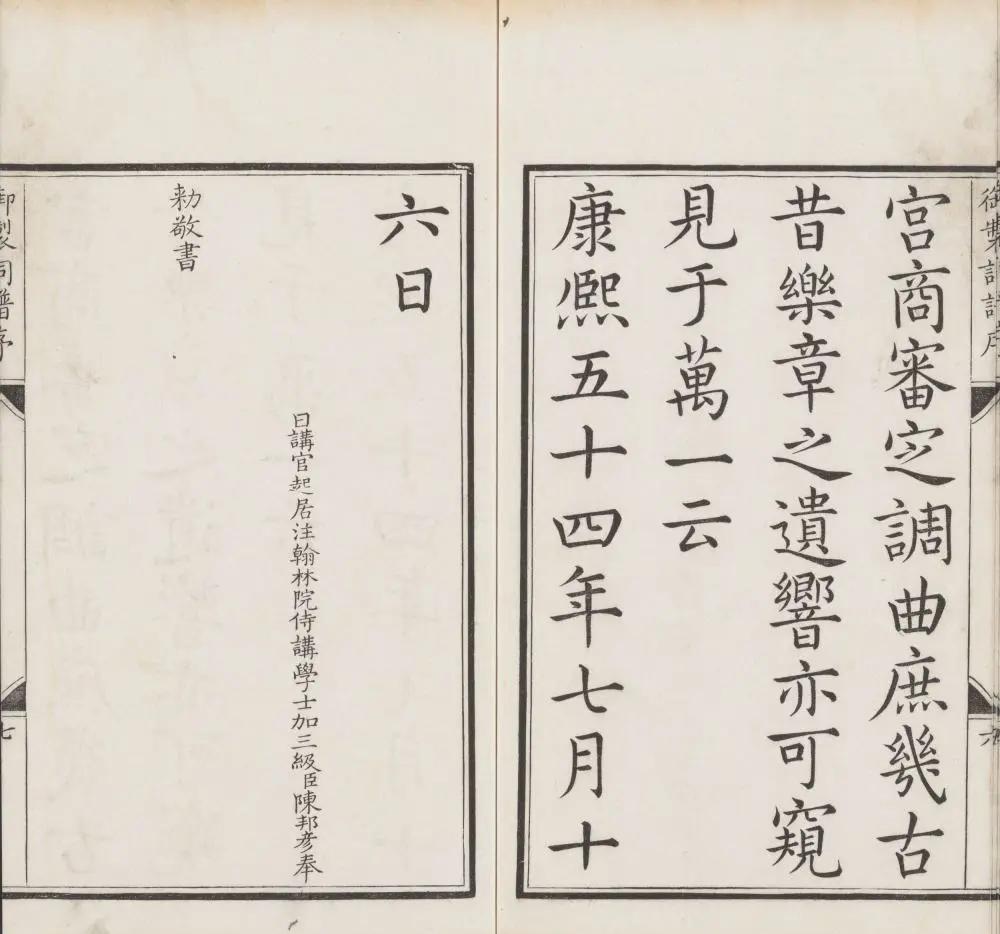 御製詞譜序
六
宮商審定調曲庶幾古
昔樂章之遺響亦可窺
見于萬一云
康熙五十四年七月十
六日
日講官起居注翰林院侍講學士加三級臣陳邦彥奉
勅敬書
御製詞譜序
七